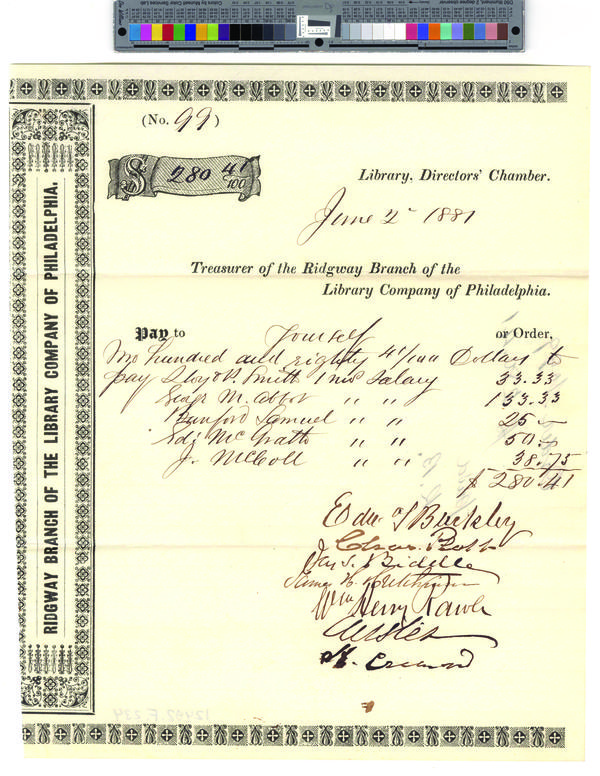 RIDGWAY BRANCH OF THE LIBRARY COMPANY OF PHILADELPHIA.
(No. 99)
$ 280 41/100
Library, Directors' Chamber.
June 2 1881
Treasurer of the Ridgway Branch of the
Library Company of Philadelphia.
Pay to Yourself or Order,
Two hundred and eighty 41/100 Dollars to
pay Lloyd P. Smith 1 mos Salary 33.33
George M. Abbot " " 133.33
Bunford Samuel " " 25
Edw McGrath " " 50
J. McCall " " 38.75
$ 280.41
Edw S Buckley
Chas. Platt
Jas. S. Biddle
James H. Hutchinson
Wm Henry Rawle
12492.F.234